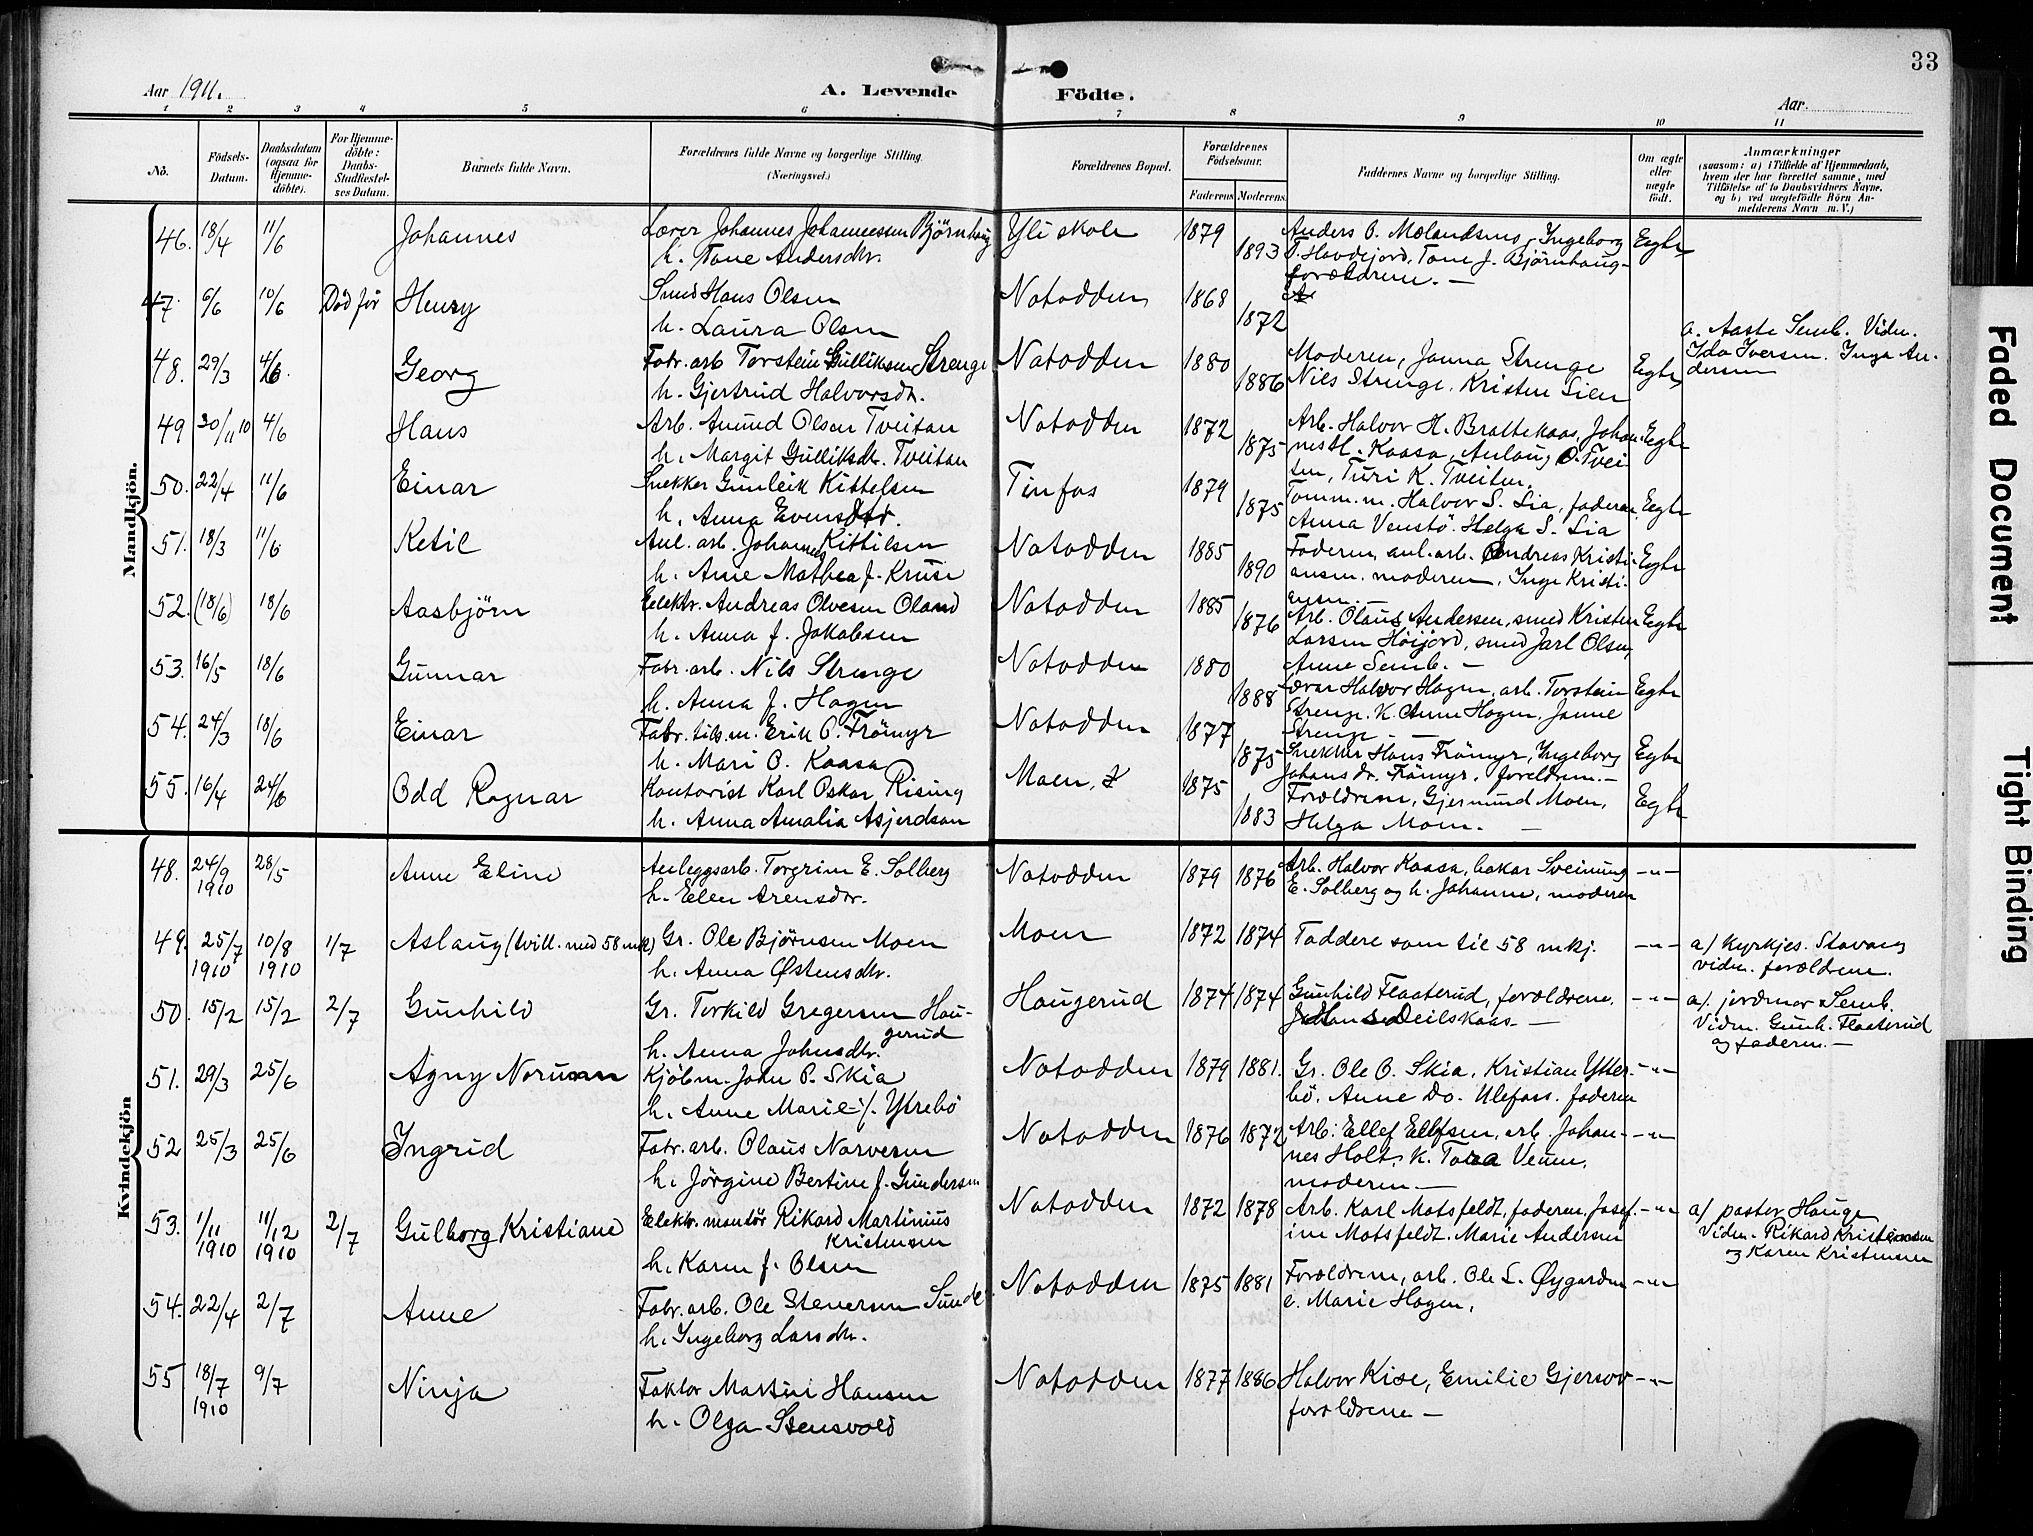 33
Aar 1911.
A. Levende Födte.
Aar
1 2 3 4 5 6 7 8 9 10 11
No.
Födsels-Datum.
Daabsdatum (ogsaa for Hjemmedöbte).
For Hjemmedöbte: Daabs-Stadfæstelses Datum.
Barnets fulde Navn.
Forældrenes fulde Navne og borgerlige Stilling. (Næringsvei.)
Forældrenes Bopæl.
Forældrenes Födselsaar.
Faderens Moderens
Faddernes Navne og borgerlige Stilling.
Om ægte eller uægte födt.
Anmærkninger
(saasom: a) i Tilfælde af Hjemmedaab, hvem der har forrettet samme, med Tilföielse af to Daabsvidners Navne, og b) ved uægtefödte Börn Anmelderens Navn m. V.)
Mandkjön.
46. 18/4 11/6 Johannes Lærer Johannes Johannessen Bjørnhaug Yli skole 1879 Anders O. Molandsmo, Ingeborg Egte
h. Tone Andersdtr. 1893 T. Hovdejord, Tone J. Bjørnhaug
forældrene. —
47. 6/6 10/6 Död för Henry Smed Hans Olsen Notodden 1868
h. Laura Olsen 1872
48. 29/3 4/6. Georg Fabr. arb Torstein Gulliksen Strenge Notodden 1880 Moderen, Janna Strenge Egte a. Aaste Semb. Vidn.
h. Gjertrud Halvorsdr. 1886 Nils Strenge, Kristen Lien Ida Iversen. Inga Andersen
49 30/11 10 4/6 Hans Arb. Amund Olsen Tveitan Notodden 1872 Arb. Halvor H. Brattekaas, Johan- Egte
h. Margit Gulliksdr. Tveitan 1875 nes H. Kaasa, Aslaug O. Tvei
ten, Turi K. Tveiten.
50. 22/4 11/6 Einar Snekker Gunleik Kittelsen Tinfos 1879 Tomm.m. Halvor S. Lia, faderen, Egte
h. Anna Evensdtr. 1875 Anna Venstö. Helga S. Lia
51. 18/3 11/6 Ketil Anl. arb. Johannes Kittilsen Notodden 1885 Faderen, anl. arb. Andreas Kristi- Egte
h. Anne Mathea f. Kruse 1890 ansen. moderen, Inga Kristi-
ansen.
52. (18/6) 18/6 Aasbjörn Elektr. Andreas Olvesen Oland Notodden 1885 Arb. Olaus Andersen, smed Kristen Egte
h. Anna f. Jakobsen 1876 Larsen Höijord, smed Jarl Olsen,
Anne Semb. —
53. 16/5 18/6 Gunnar Fabr. arb. Nils Strenge Notodden 1880 Lærer Halvor Hagen, arb. Torstein Egte
h. Anna f. Hagen 1888 Strenge. K. Anne Hagen, Janne
Strenge — —
54. 24/3 18/6 Einar Fabr. tils.m. Erik O. Frömyr Notodden 1877 Snekker Hans Frömyr, Ingeborg Egte
h. Mari O. Kaasa 1875 Johansdr. Frömyr, foreldrene. —
55. 16/4 24/6 Odd Ragnar Kontorist Karl Oskar Rising Moen, 1875 Forældrene, Gjermund Moen, Egte
h. Anna Amalia Asjerdson 1883 Helga Moen. —
Kvindekjön
48. 24/9 1910 28/5 Anne Eline Anleggsarb. Torgrim E. Solberg Notodden 1879 1876 Arb. Halvor Kaasa, bakar Sveinung -"-
h. Ellen Arensdtr. E. Solberg og h. Johanne, moderen
49. 25/7 1910 10/8 1910 1/7 Aslaug (tvill. med 58 mk) Gr. Ole Bjørnsen Moen Moen 1872 1874 Faddere som til 58 mkj. -"- a/ kyrkjes. Stavang
h. Anna Østensdtr. vidn. forældrene.
50. 15/2 15/2 2/7 Gunhild Gr. Torkild Gregersen Hau- Haugerud 1874 1874 Gunhild Flaaterud, forældrene. -"- a/. jordmor Semb.
gerud Deilskaas — Vidn. Gunh. Flaaterud
h. Anna Johnsdtr. og faderen. —
51. 29/3 25/6 Agny Norunn Kjöbm. John O. Skia Notodden 1879 1881. Gr. Ole O. Skia, Kristian Ytter- -"-
h. Anne Marie f. Ytrebö bö, Anne Do. Ulefoss. faderen
52 25/3 25/6 Ingrid Fabr. arb. Olaus Narvesen Notodden 1876 1872 Arb. Ellef Ellefsen, arb. Johan- -"-
h. Jörgine Bertine f. Gundersen nes Holt. K. Tora Venen,
moderen. —
53. 1/11 1910 11/12 1910 2/7 Gulborg Kristiane Elektr. montör Rikard Martinius Notodden 1872 1878 Arb. Karl Motsfeldt, faderen, Josef- -"- a/ pastor Hauge
Kristensen ine Motsfeldt. Marie Andersen Vidn. Rikard Kristensen
h. Karen f. Olsen og Karen Kristensen
54. 22/4 2/7 Anne Fabr. arb. Ole Stenersen Sunde Notodden 1875 1881 Forældrene, arb. Ole L. Øygarden -"-
h. Ingeborg Larsdtr. e. Marie Hagen,
55 18/7 1910 9/7 Ninja Faktor Martin Hansen Notodden 1877 1886 Halvor Kise, Emilie Gjersov -"-
h. Olga Stensvold forældrene —
Faded Document
Tight Binding